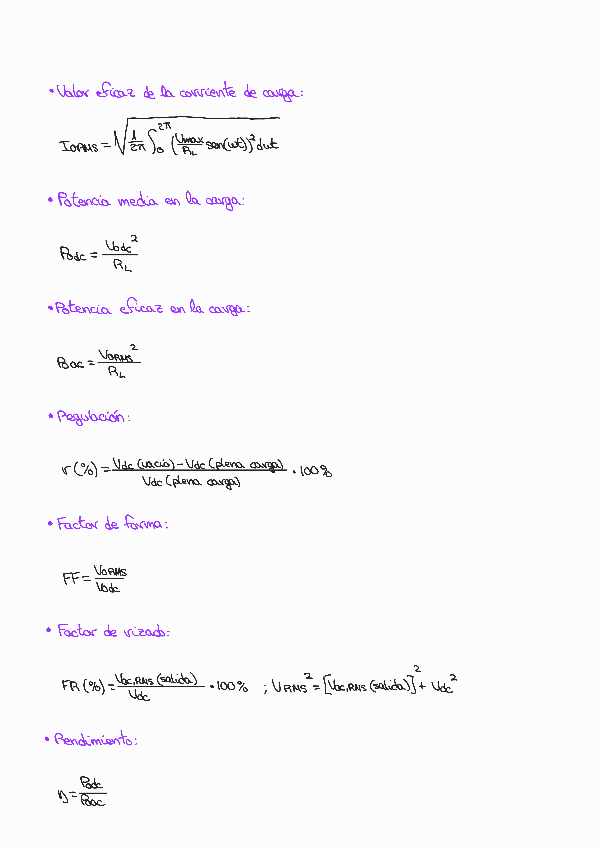 • Valor eficaz de la corriente de carga:
I₀RMS = √(1/2π ∫₀^2π (Vmax/RL sen(wt))² dwt)
• Potencia media en la carga:
P₀dc = V₀dc²/RL
• Potencia eficaz en la carga:
P₀ac = V₀RMS²/RL
• Regulación:
r(%) = Vdc (vacío) - Vdc (plena carga)/Vdc (plena carga) · 100%
• Factor de forma:
FF = V₀RMS/V₀dc
• Factor de rizado:
FR (%) = Vac,RMS (salida)/Vdc · 100% ; VRMS² = [Vac,RMS (salida)]² + Vdc²
• Rendimiento:
η = P₀dc/P₀ac